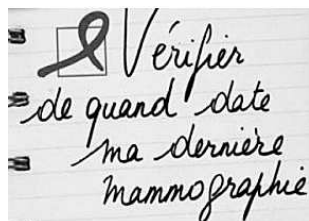 Vérifier
de quand date
ma dernière
mammographie